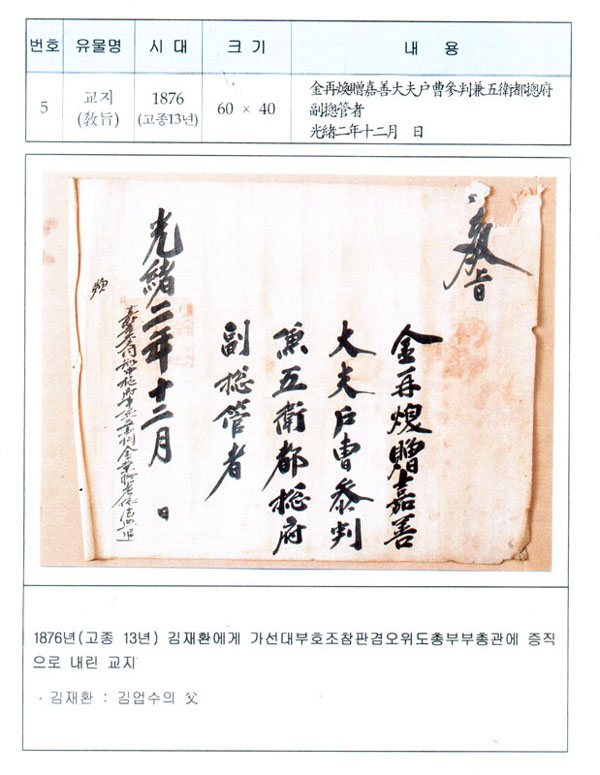 번호 유물명 시 대 크 기 내 용
5 교지 (敎旨) 1876 (고종13년) 60 × 40 金再煥贈嘉善大夫户曹參判兼五衛都摠府
副摠管者
光緖二年十二月 日
敎旨
金再煥贈嘉善
大夫户曹叅判
兼五衛都摠府
副摠管者
光緖二年十二月 日
1876년(고종 13년) 김재환에게 가선대부호조참판겸오위도총부부총관에 증직
으로 내린 교지
- 김재환 : 김업수의 父